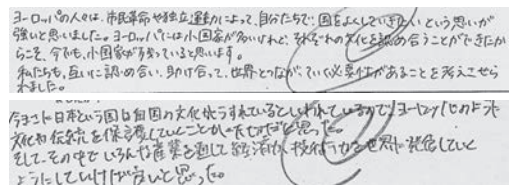 ヨーロッパの人々は、市民革命や独立運動によって、自分たちで、国をよくしていきたいという思いが
強いと思いました。ヨーロッパには小国家が多いけれど、それぞれの文化を認め合うことができたか
らこそ、今でも、小国家が残っていると思います。
私たちも、互いに認め合い、助け合って、世界とつながっていく必要性があることを考えさせら
れました。
今まさに日本という国は自国の文化がうすれているといわれているので、ヨーロッパのような
文化や伝統を保護していくことが大切だなと思った。
そして、その中でいろんな産業を通して経済力、技術力を世界に発信していく
ようにしていけば良いと思った。